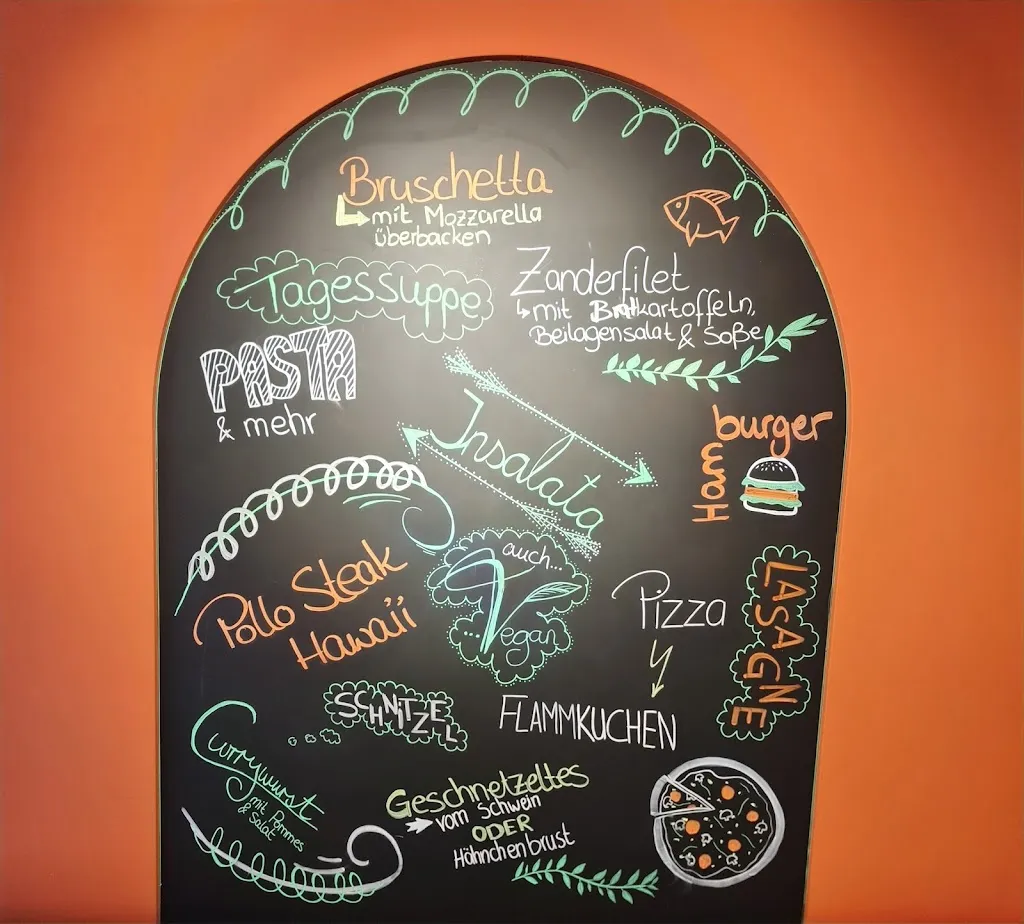 Bruschetta
mit Mozzarella
überbacken
Tagessuppe
Zanderfilet
mit Bratkartoffeln,
Beilagensalat & Soße
PASTA
& mehr
Insalata
burger
Ham
Pollo Steak
Hawaii
auch...
...Vegan
Pizza
LASAGNE
SCHNiTZEL
FLAMMKUCHEN
Currywurst
mit Pommes
& Salat
Geschnetzeltes
vom Schwein
ODER
Hähnchenbrust